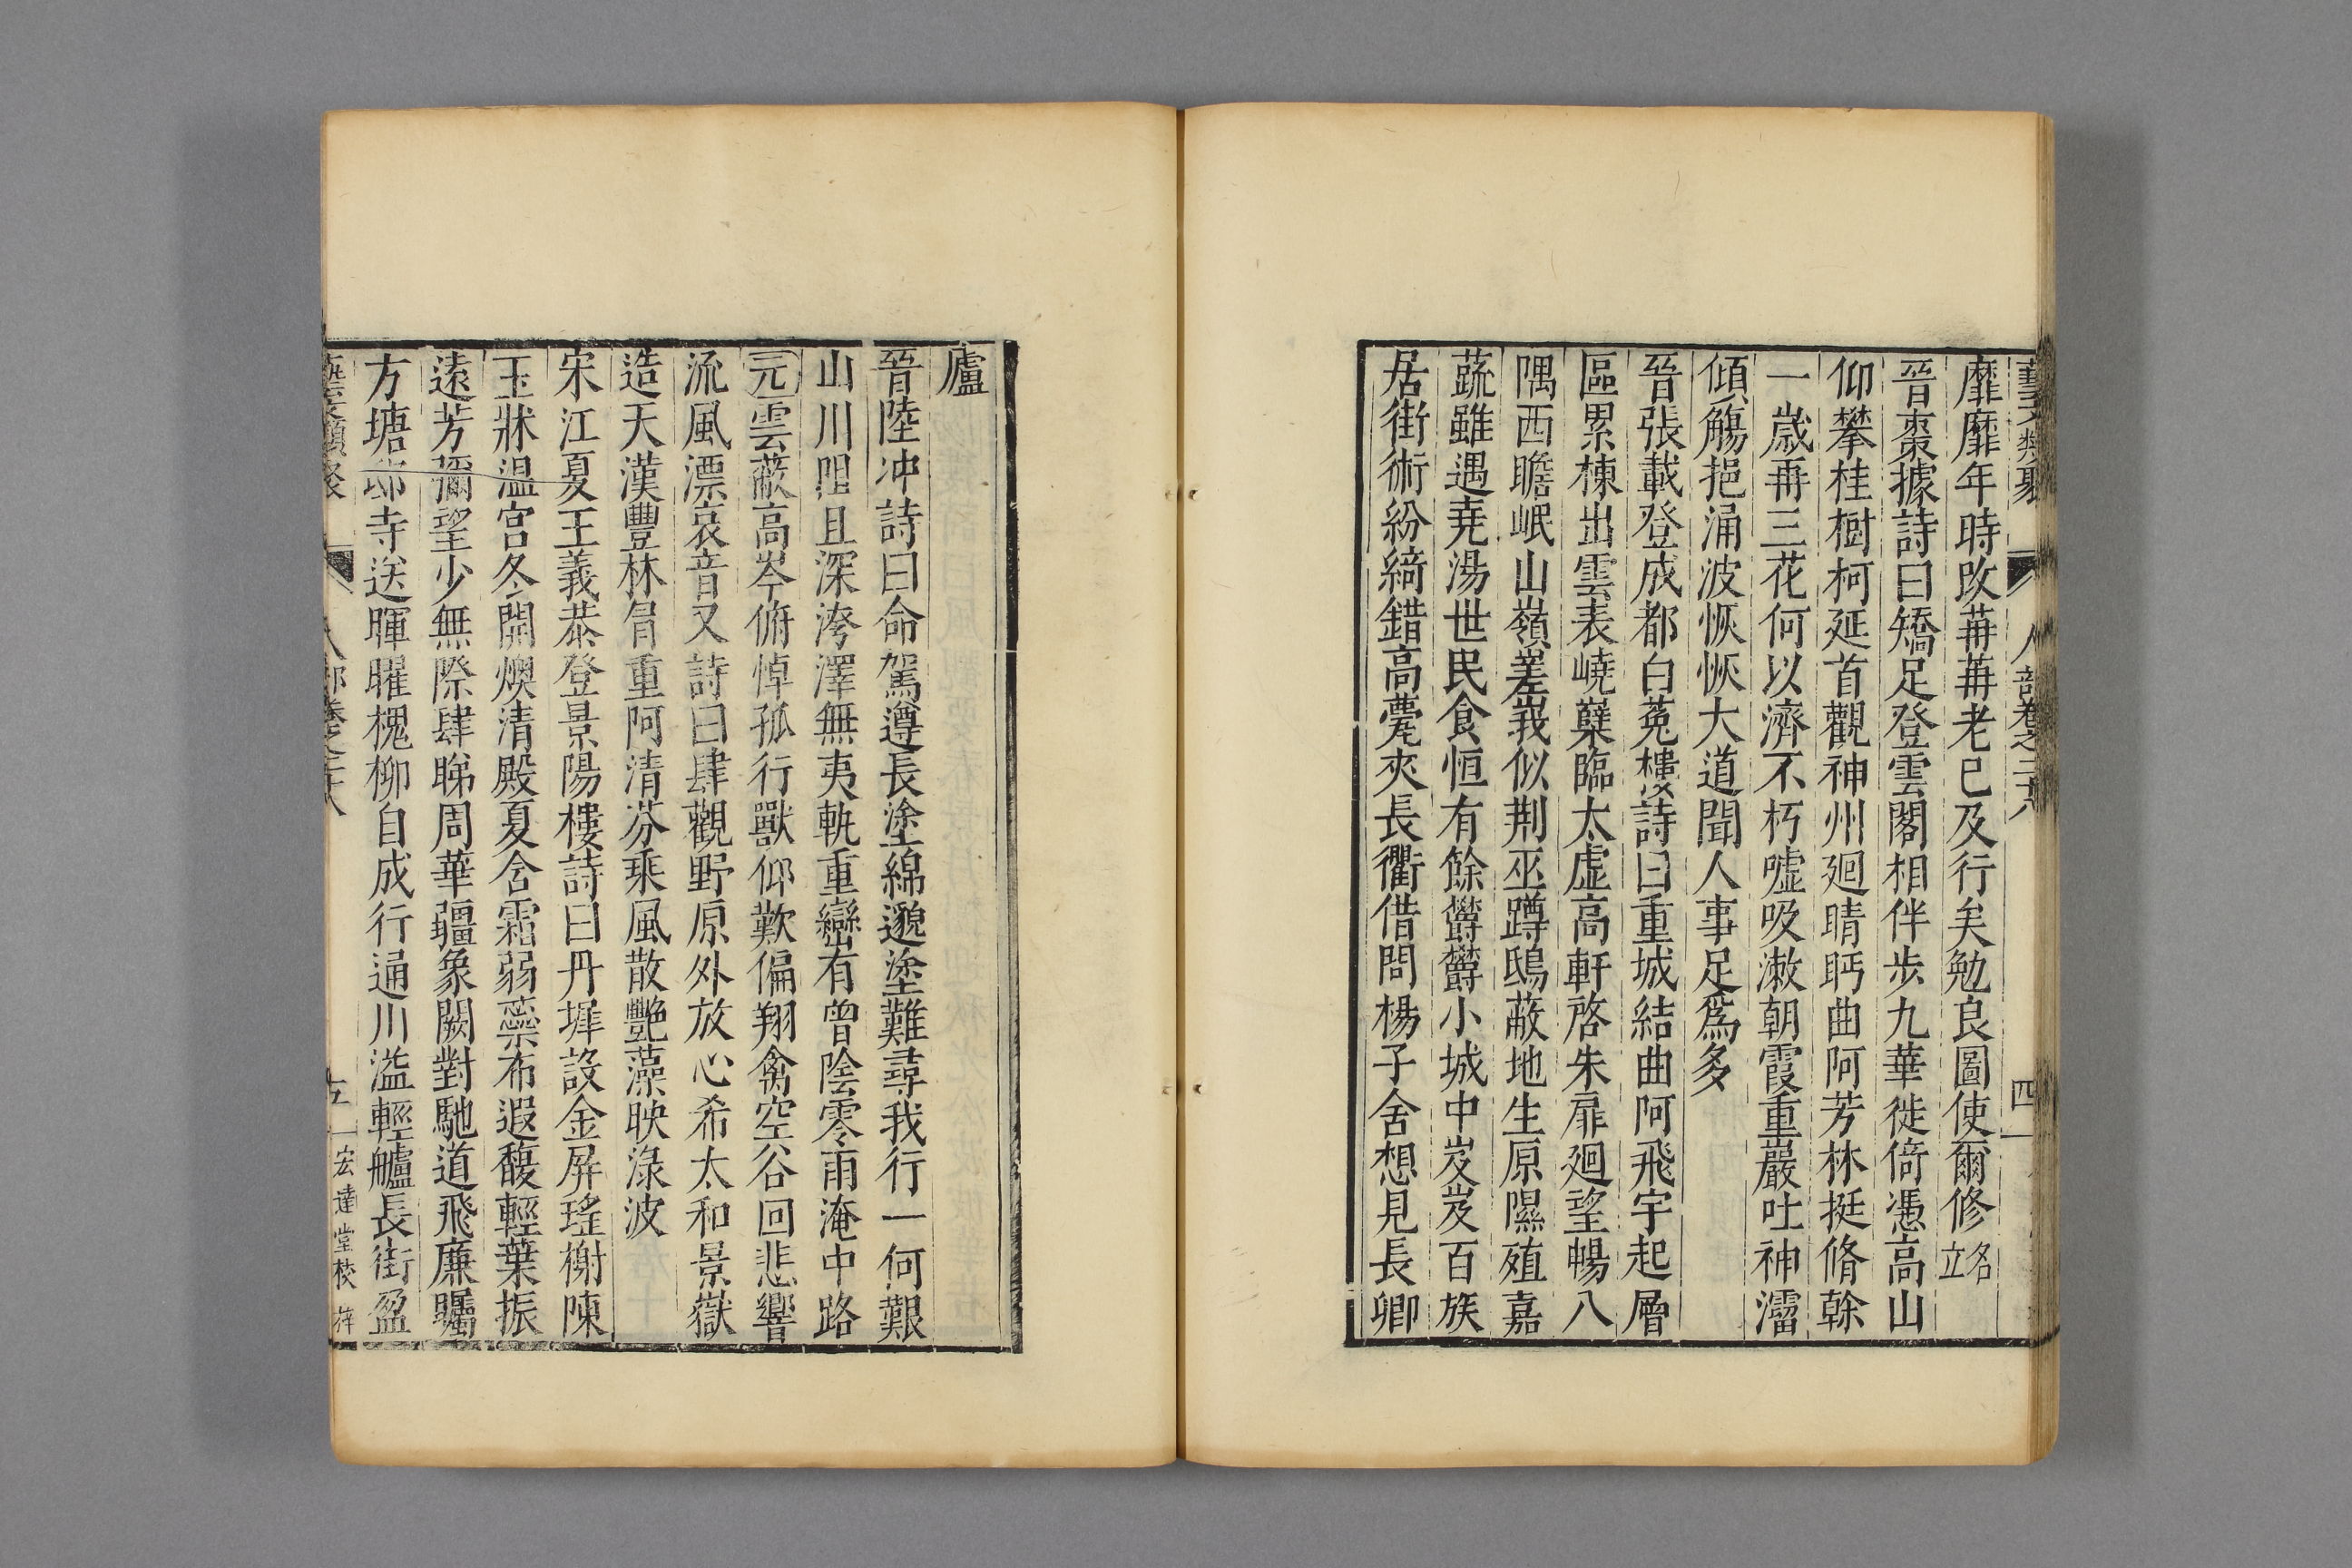 藝文類聚 人部卷之二十八 四
靡靡年時改苒苒老已及行矣勉良圖使爾修名立
晉棗據詩曰矯足登雲閣相伴步九華徙倚憑高山
仰攀桂樹柯延首觀神州廻睛眄曲阿芳林挺脩榦
一歲再三花何以濟不朽噓吸漱朝霞重巖吐神溜
傾觴挹涌波恢恢大道聞人事足爲多
晉張載登成都白菟樓詩曰重城結曲阿飛宇起層
區累棟出雲表嶢櫱臨太虛高軒啓朱扉廻望暢八
隅西瞻岷山嶺嵳峩似荆巫蹲鴟蔽地生原隰殖嘉
蔬雖遇堯湯世民食恒有餘欝欝小城中岌岌百族
居街術紛綺錯高甍夾長衢借問楊子舍想見長卿
廬
晉陸冲詩曰命駕遵長塗綿邈塗難尋我行一何艱
山川阻且深洿澤無夷軌重巒有曾陰零雨淹中路
元雲蔽高岑俯悼孤行獸仰歎偏翔禽空谷回悲響
流風漂哀音又詩曰肆觀野原外放心希太和景嶽
造天漢豐林冐重阿清芬乘風散艷藻映淥波
宋江夏王義恭登景陽樓詩曰丹墀設金屏瑤榭陳
玉牀温宮冬開燠清殿夏含霜弱蘂布遐馥輕葉振
遠芳彌望少無際肆睇周華疆象闕對馳道飛廉矚
方塘邸寺送暉曜槐柳自成行通川溢輕艫長街盈
藝文類聚 人部卷之二十八 五 宏達堂校梓